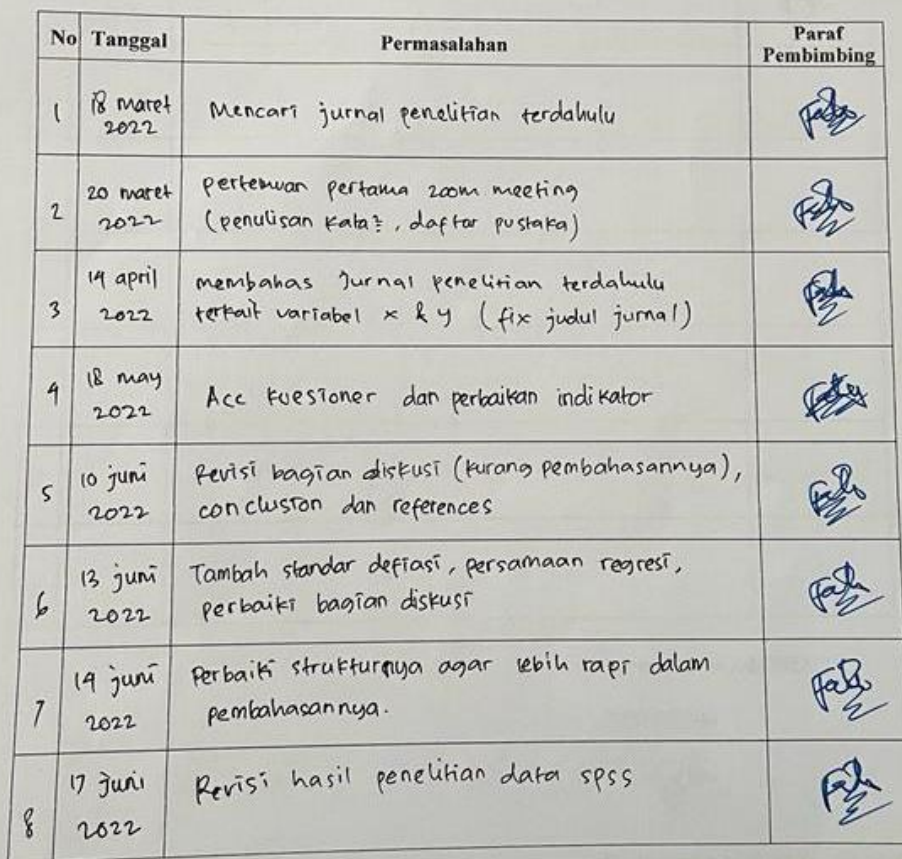 No Tanggal Permasalahan Paraf
Pembimbing
1 18 maret Mencari jurnal penelitian terdahulu
2022
2 20 maret pertemuan pertama zoom meeting
2022 (penulisan kata², daftar pustaka)
3 14 april membahas Jurnal penelitian terdahulu
2022 terkait variabel x & y (fix judul jurnal)
4 18 may Acc kuesioner dan perbaikan indikator
2022
5 10 juni Revisi bagian diskusi (kurang pembahasannya),
2022 conclusion dan references
6 13 juni Tambah standar defiasi, persamaan regresi,
2022 perbaiki bagian diskusi
7 14 juni Perbaiki strukturnya agar lebih rapi dalam
2022 pembahasannya.
8 17 Juni Revisi hasil penelitian data spss
2022